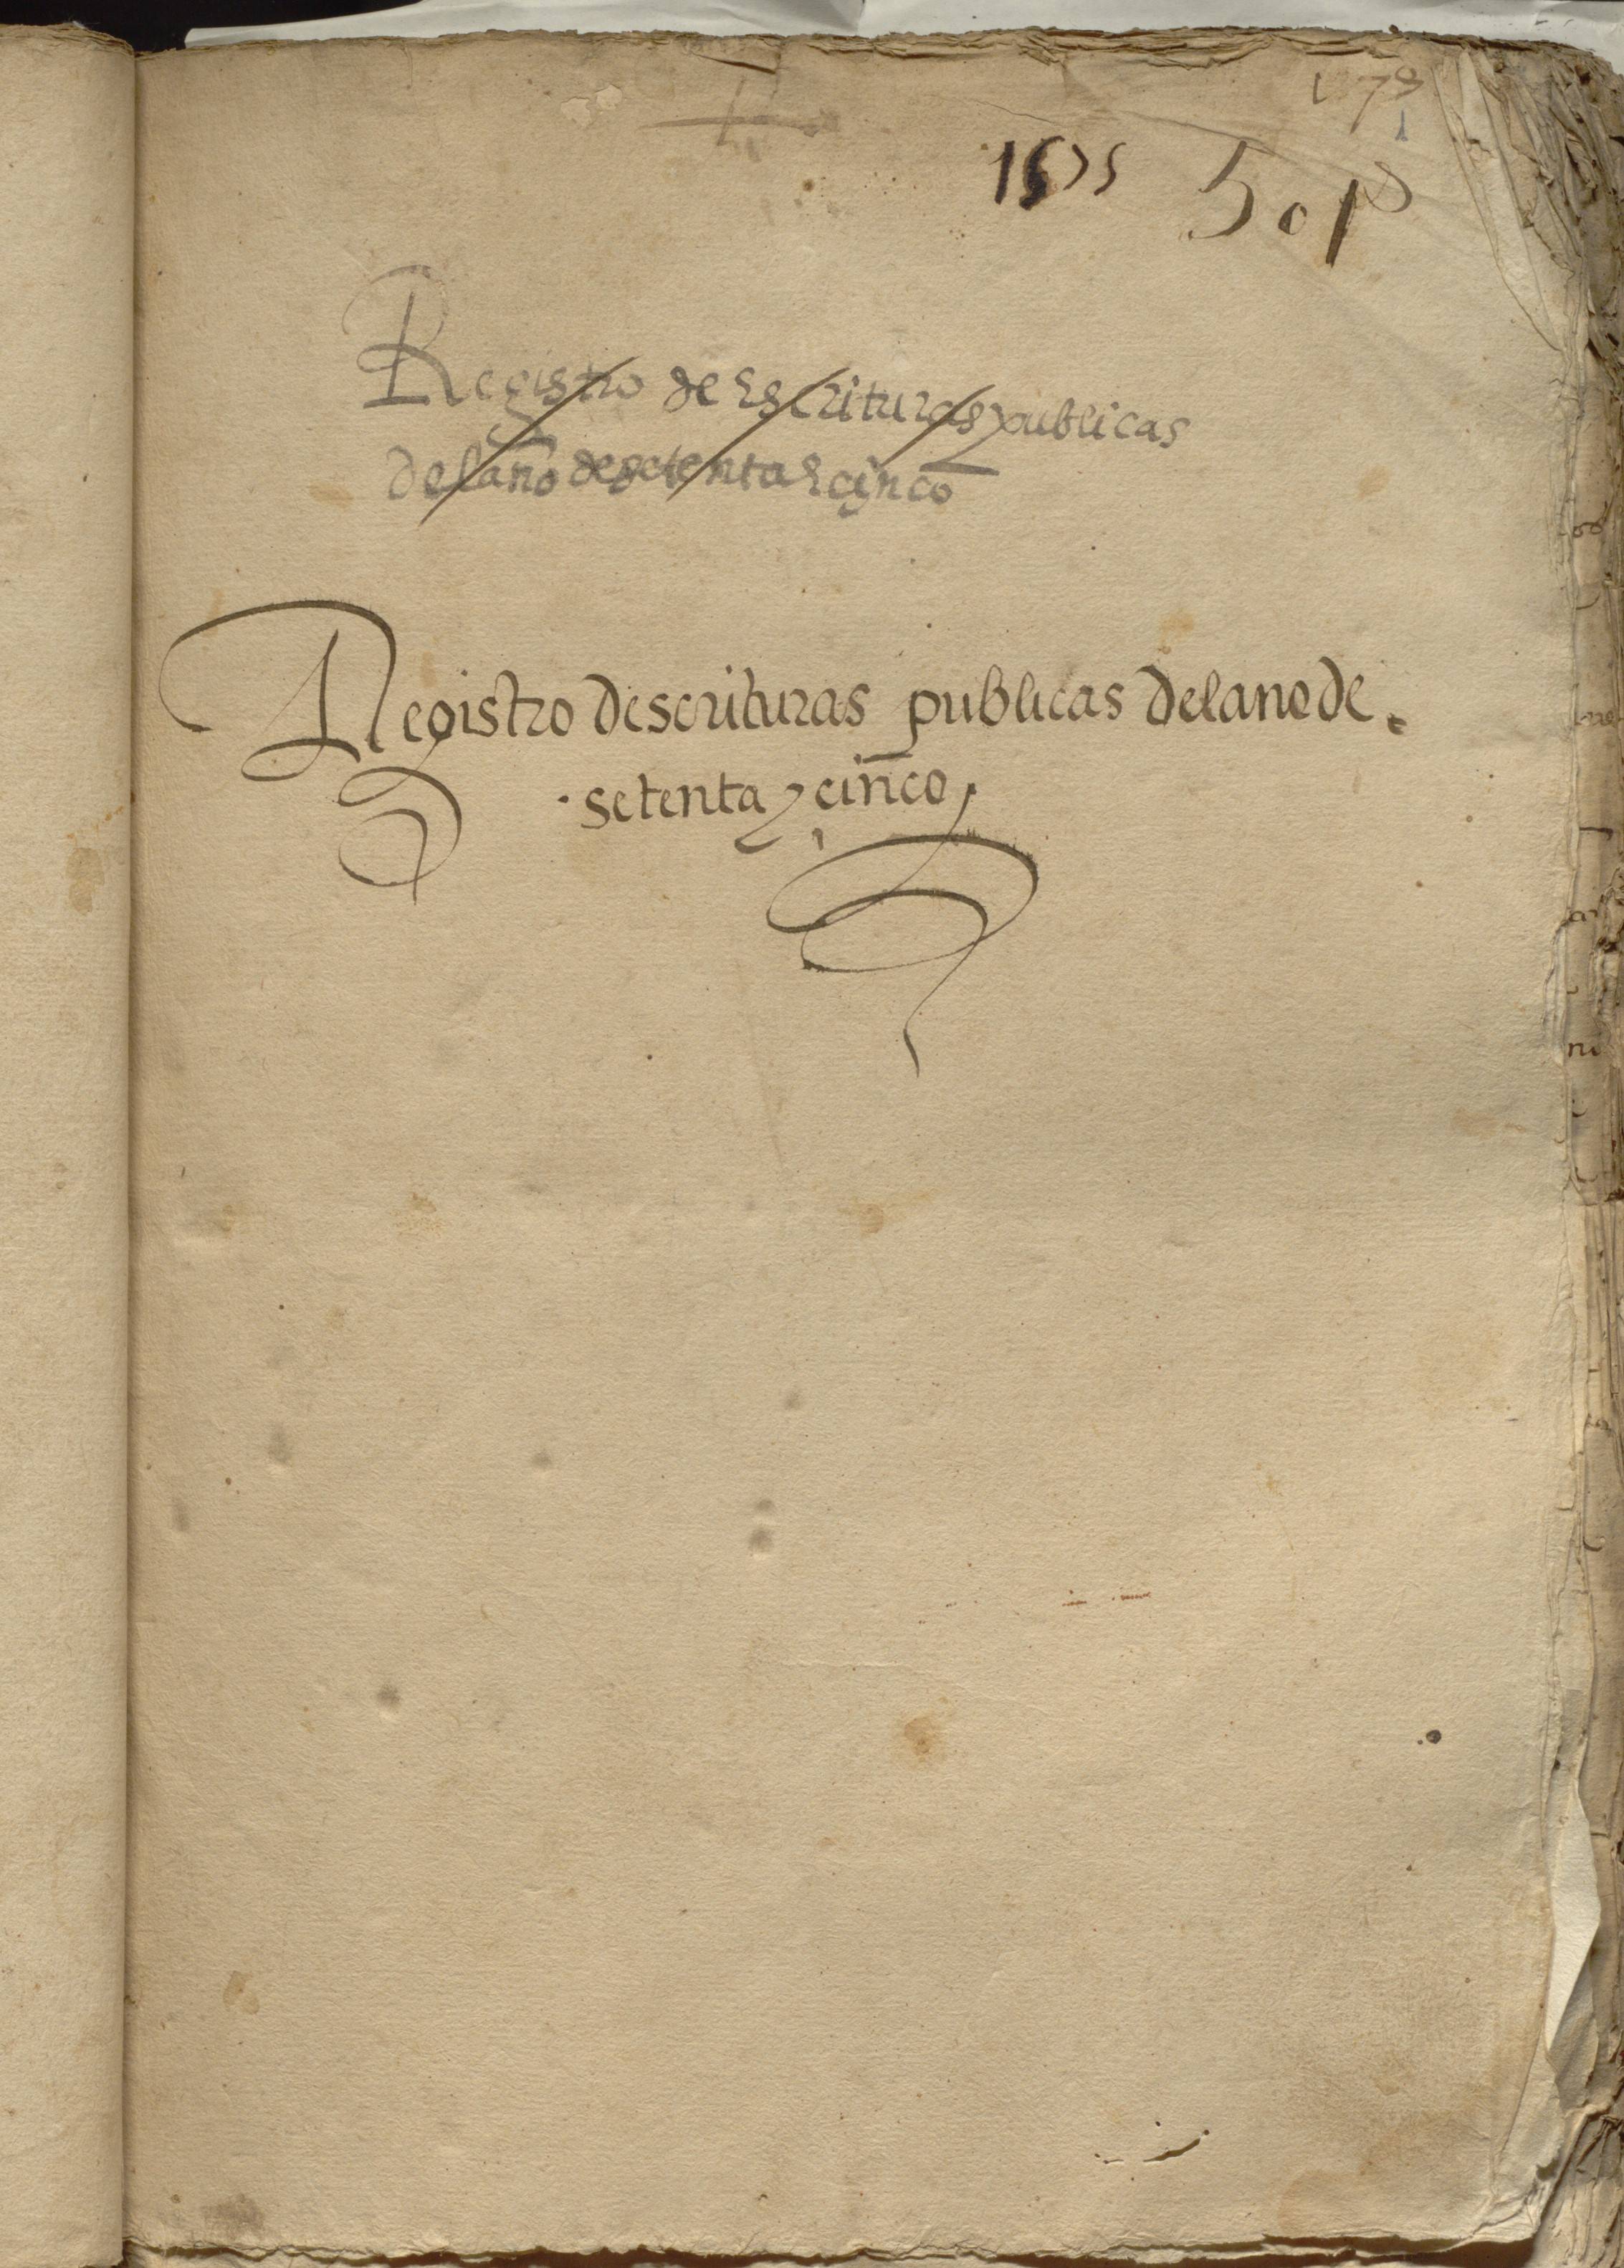 1575
Registro de Escrituras publicas
del año de setenta E cinco
Registro descrituras publicas del ano de
setenta y cinco